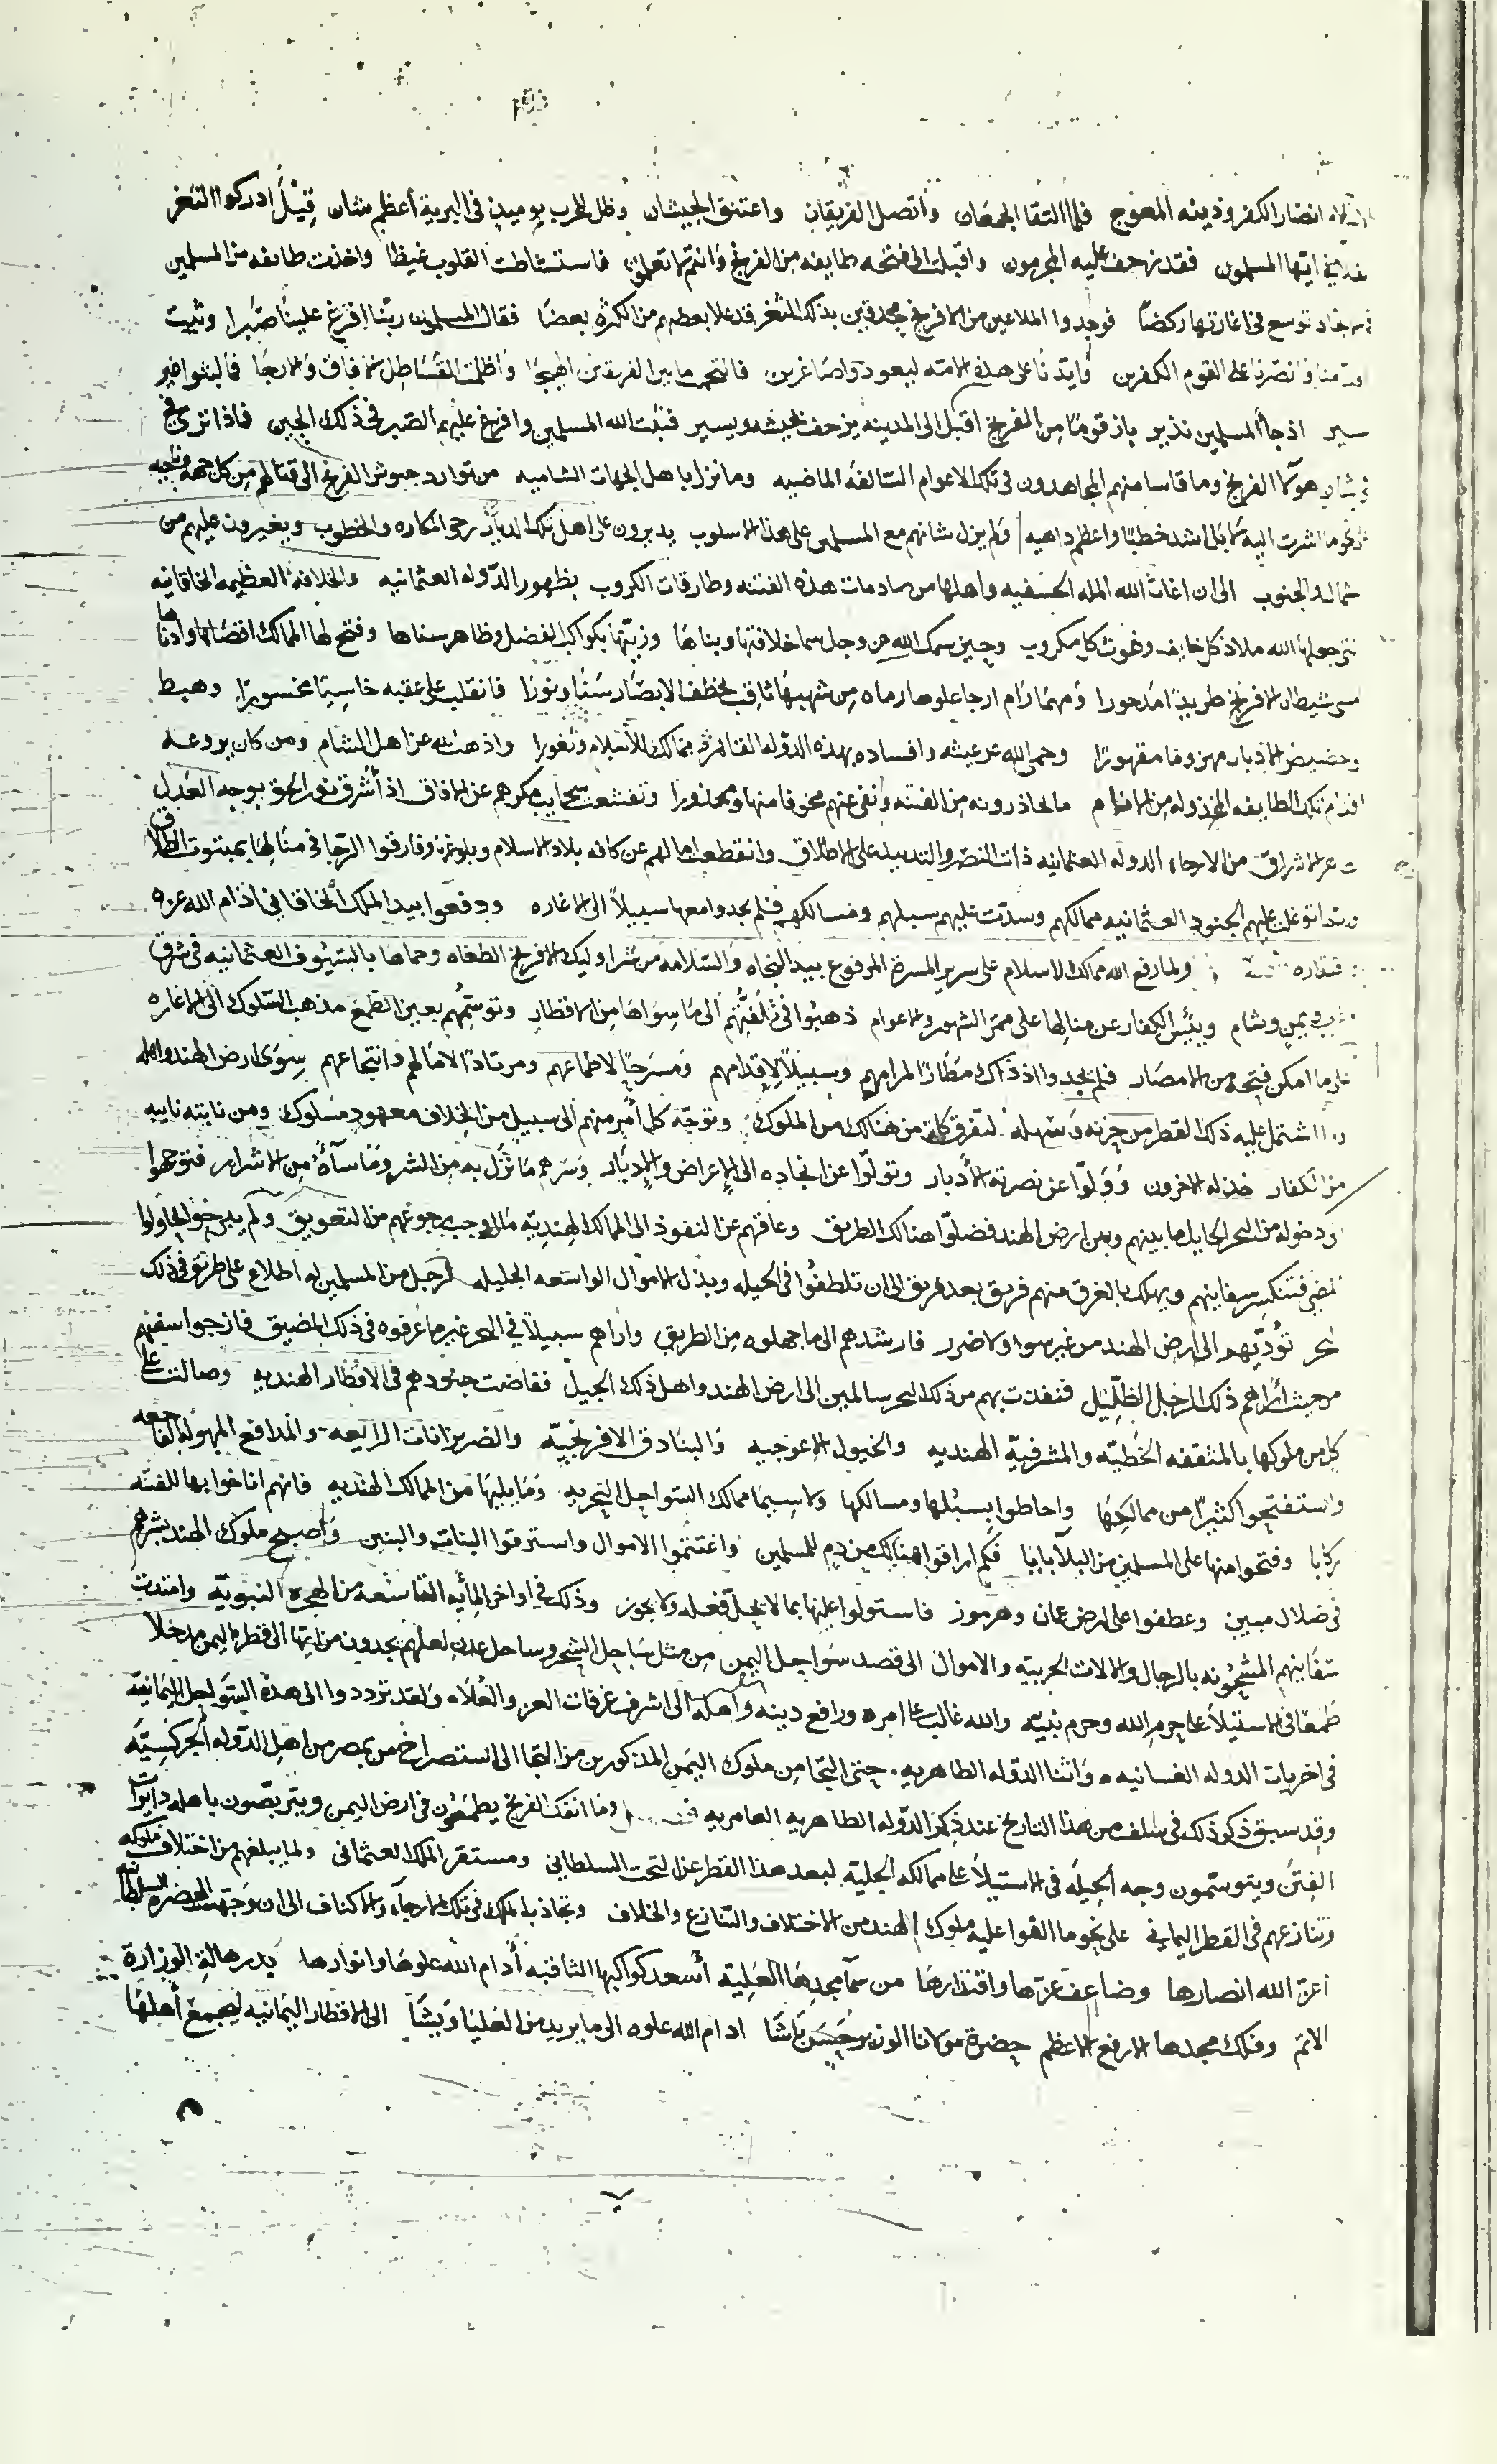 انصار الكفر ودينه المعوج فلما التقا الجمعان واتصل الفريقان واعتنق الجيشان وظل للحرب يوميذ في البرية أعظم شان قِيْلَ ادركوا الثغر
ايّها المسلمون فقد زحف عليه المجرمون واقبلت الى فتحه طايفه من الفرنج وانتم لا تعلمون فاستشاطت القلوب غيظا واخذت طايفه من المسلمين
توسع في اغارتها ركضًا فوجدوا الملاعين من الافرنج محدقين بذلك الثغر قد علا بعضهم من الكثرة بعضا فقال المسلمون ربّنا افرغ علينا صَبرا وثبت
وانصرنا على القوم الكفرين وايّدنا على هذه الامة ليعودوا صاغرين فالتحم ما بين الفريقين الهيجا واظلمت القساطل الافاق والارجا فما لبثوا غير
يسير اذ جا المسلمين نذير بان قومًا من الفرنج اقبل الى المدينه يزحف بجيشه ويسير فثبت الله المسلمين وافرغ عليهم الصّبر في ذلك الحين فماذا ترى في
شان هولآ الفرنج وما قاسا منهم المجاهدون في تلك الاعوام السّالفه الماضيه وما نزل باهل الجهات الشاميه من توارد جيوش الفرنج الى قتالهم من كل جهه وناحيه
ما اشرت اليه لا بل اشد خطبًا واعظم داهيه ولم يزل شانهم مع المسلمين على هذا الاسلوب يديرون على اهل تلك الديار رحى المكاره والخطوب ويغيرون عليهم من
شمال والجنوب الى ان اغاث الله المله الحنيفيه واهلها من صادمات هذه الفتنه وطارقات الكروب بظهور الدّوله العثمانيه والخلافه العظيمه الخاقانيه
التي جعلها الله ملاذ كل خايف وغوث كل مكروب وحين سمك الله عز وجل سما خلافتها وبناها وزيّنها بكواكب الفضل وظاهر سناها وفتح لها الممالك اقصاها وادناها
شيطان الافرنج طريدًا مدحورا ومهما رام ارجا علوها رماه من شهبها ثاقب يخطف الابصار سنًا ونورا فانقلب على عقبه خاسيًا محسورا وهبط
وحضيض الادبار مهزوما مقهورًا وحمى الله عن عيثه وافساده بهذه الدوله القاهرة ممالك للاسلام وثغورا واذهب الله عن اهل الشام ومن كان يروعه
اقدام تلك الطايفه المخذوله من الانام ما يحاذرونه من الفتنه ونفى عنهم مخوفا منها ومحذورا وتقشعت سحايب مكرهم عن الافاق اذ أشرق نور الحق بوجه العَدل
من الارجاء الدوله العثمانيه ذات النصر والتدبير على الاطلاق وانقطعت امالهم عن كافه بلاد الاسلام وبلوغها وفارقوا الرّجا في منالها بمبتوت الطلاق
توغلت عليهم الجنود العثمانيه ممالكهم وسدّت عليهم سبلهم ومسالكهم فلم يجدوا معها سبيلاً الى الاغاره ودفعوا بيد الملك الخاقاني ادام الله عزه
ولما رفع الله ممالك الاسلام على سرير المسرة المرفوع بيد النجاه والسّلامه من شر اوليك الافرنج الطغاه وحماها بالسّيوف العثمانيه في شرق
ويمن وشام ويئس الكفار عن منالها على ممر الشهور والاعوام ذهبوا في تلفّتهم الى ما سواها من الاقطار وتوسمهم بعين الطمع مذهب السّلوك الى الاغاره
على ما امكن فتحه من الامصار فلم يجدوا اذ ذاك مطارًا لمرامهم وسبيلاً لاقدامهم ومسرحًا لاطماعهم ومرتادًا لامالهم وانتجاعهم سوى ارض الهند واهله
وما اشتمل عليه ذلك القطر من حزنه وسهله لتفرق كلمة من هنالك من الملوك وتوجّه كل أمر منهم الى سبيل من الخلاف معهود مسلوك ومن نابته نايبه
من الكفار خذله الاخرون وولّوا عن نصرته الأدبار وتولّوا عن انجاده الى الإعراض والإدبار وسرهم ما نزل به من الشر وما سآهُ من الاشرار فتوجهوا
دخوله من البحر الحايل ما بينهم وبين ارض الهند فضلّوا هنالك الطريق وعاقهم عن النفوذ الى الممالك الهنديه ما اوجب رجوعهم من التعويق ولم يبرحوا يحاولوا
المضي فتنكسر سفاينهم ويهلك بالغرق منهم فريق بعد فريق الى ان تلطفوا في الحيله وبذل الاموال الواسعه الجليله لرجل من المسلمين له اطلاع على طريق في ذلك
البحر تؤديهم الى ارض الهند من غير سوا ولا ضرر فارشدهم الى ما جهلوه من الطريق واراهم سبيلاً في البحر غير ما عرفوه في ذلك المضيق فازجوا سفنهم
من حيث اراهم ذلك الرجل الظلّيل فنفدت بهم من ذلك البحر سالمين الى ارض الهند واهل ذلك الجيل ففاضت جنودهم في الاقطار الهنديه وصالت على
كل من ملوكها بالمثقفه الخطيّه والمشرفيّه الهنديه والخيول الاعوجيه والبنادق الافرنجيّه والضربزانات الرايعه والمدافع المهوله الفاجعه
واستفتحوا كثيرًا من ممالكها واحاطوا بسبلها ومسالكها ولا سيما ممالك السّواحل البحريه وما يليها من الممالك الهنديه فانهم اناخوا بها للفتنه
ركابا وفتحوا منها على المسلمين من البلآ بابا فكم اراقوا هنالك من دم للمسلمين واغتنموا الاموال واسترقوا البنات والبنين واصبح ملوك الهند بشرهم
في ضلال مبين وعطفوا على ارض عمان وهرموز فاستولوا عليها بما لا يحلّ فعله ولا يجوز وذلك في اواخر المأيه التاسعه من الهجره النبويّه وامتدت
سفاينهم المشحونه بالرجال والالات الحربيّه والاموال الى قصد سواحل اليمن من مثل ساحل الشحر وساحل عدن لعلهم يجدون من ايتها الى قطر اليمن مدخلا
طمعًا في الاستيلا على حرم الله وحرم نبيّه والله غالب على امره ورافع دينه واهله الى اشرف غرفات العز والعُلاه ولقد ترددوا الى هذه السّواحل اليمانيّه
في اخريات الدوله الغسانيه واثنا الدّوله الطاهريه حتى التجا من ملوك اليمن المذكورين من التجا الى استصراخ من بمصر من اهل الدّوله الجركسيّه
وقد سبق ذكر ذلك في سلف من هذا التاريخ عند ذكر الدّوله الطاهريه العامريه وما انفك الفرنج يطمعون في ارض اليمن ويتربصون باهله دايرات
الفتن ويتوسّمون وجه الحيله في الاستيلاء على ممالكه الجليّه لبعد هذا القطر عن التحت السلطاني ومستقر الملك العثماني ولما يبلغهم من اختلاف ملوكه
وتنازعهم في القطر اليماني على نحو ما الفوا عليه ملوك الهند من الاختلاف والتنازع والخلاف وتجاذب الملك في تلك الارجآء والاكناف الى ان وجّهت الحضره السلطانيه
اعزّ الله انصارها وضاعف عزّها واقتدارها من سمآ مجدها العَليّه أسعد كواكبها الثاقبه أدام الله علوها وانوارها بدر هالةِ الوزارة
الاتم وفلك مجدها الارفع الاعظم حضرة مولانا الوزير حَسَن باشا ادام الله علوه الى ما يريد من العليا ويشا الى الاقطار اليمانيه ليجمع أهلها